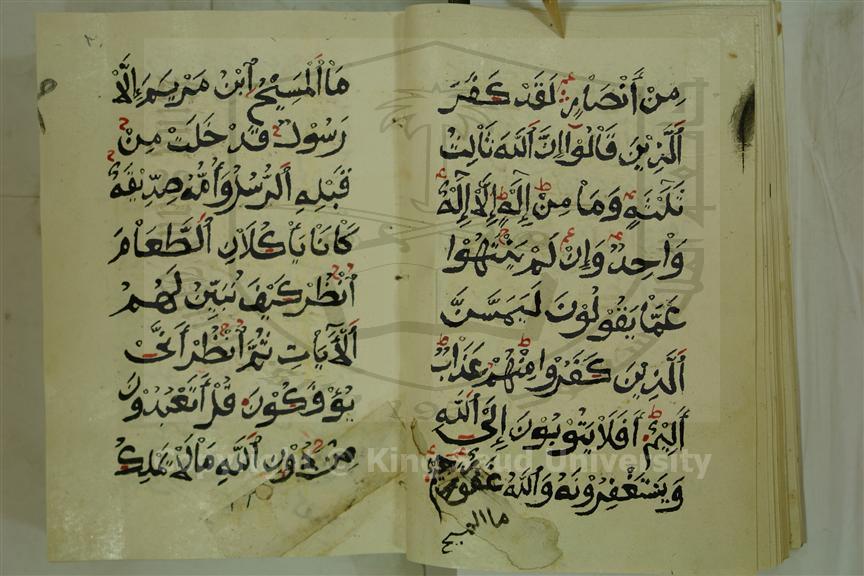 مِنْ أَنْصَارٍ لَقَدْ كَفَرَ
ٱلَّذِينَ قَالُوٓا۟ إِنَّ ٱللَّهَ ثَالِثُ
ثَلَٰثَةٍ وَمَا مِنْ إِلَٰهٍ إِلَّآ إِلَٰهٌ
وَاحِدٌ وَإِنْ لَمْ يَنْتَهُوا
عَمَّا يَقُولُونَ لَيَمَسَّنَّ
ٱلَّذِينَ كَفَرُوا مِنْهُمْ عَذَابٌ
أَلِيمٌ أَفَلَا يَتُوبُونَ إِلَى ٱللَّهِ
وَيَسْتَغْفِرُونَهُ وَٱللَّهُ غَفُورٌ رَحِيمٌ
ما المسيح
مَا ٱلْمَسِيحُ ٱبْنُ مَرْيَمَ إِلَّا
رَسُولٌ قَدْ خَلَتْ مِنْ
قَبْلِهِ ٱلرُّسُلُ وَأُمُّهُ صِدِّيقَةٌ
كَانَا يَأْكُلَانِ ٱلطَّعَامَ
ٱُنْظُرْ كَيْفَ نُبَيِّنُ لَهُمُ
ٱلْآيَاتِ ثُمَّ ٱنْظُرْ أَنَّىٰ
يُؤْفَكُونَ قُلْ أَتَعْبُدُونَ
مِنْ دُونِ ٱللَّهِ مَا لَا يَمْلِكُ
King Saud University